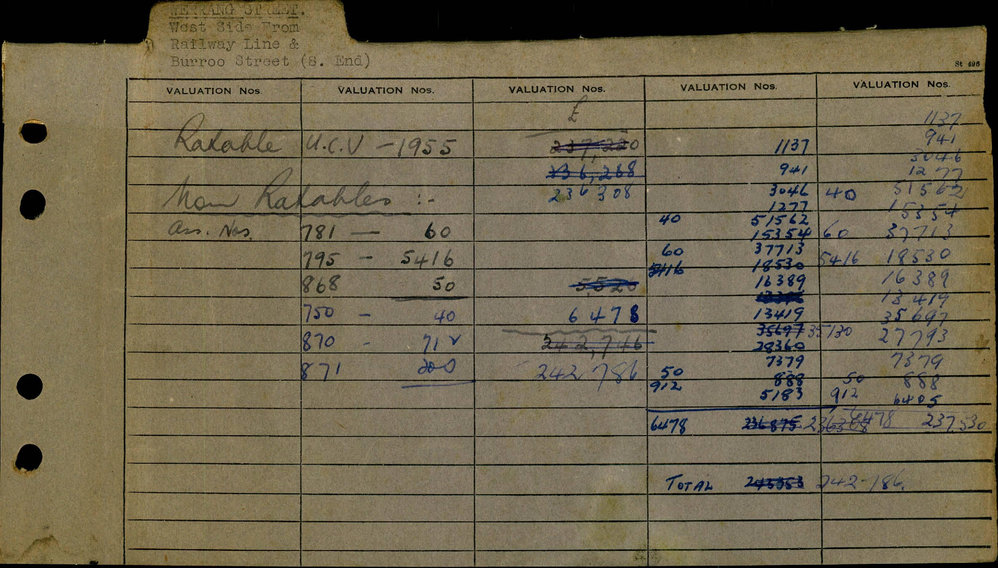 STREET.
West Side From
Railway Line &
Burroo Street (S. End)
St 496
VALUATION Nos. VALUATION Nos. VALUATION Nos. VALUATION Nos. VALUATION Nos.
£
1137
Ratable U.C.V - 1955 1137 941
136,288 941 3046
1277
Non Ratables :- 236308 3046 40 51562
1277 15354
40 51562
Ass. Nos. 781 — 60 15354 60 37713
60 37713
795 - 5416 5416 18530 5416 18530
868 50 5520 16389 16389
13419
750 - 40 6478 13419 35697
35697 35130 27793
870 - 712 242,746 28360
7379 7379
871 200 242786 50 888 50 888
912 5183 912 6405
6478 236875 236308 6478 237530
TOTAL 243353 242-786.